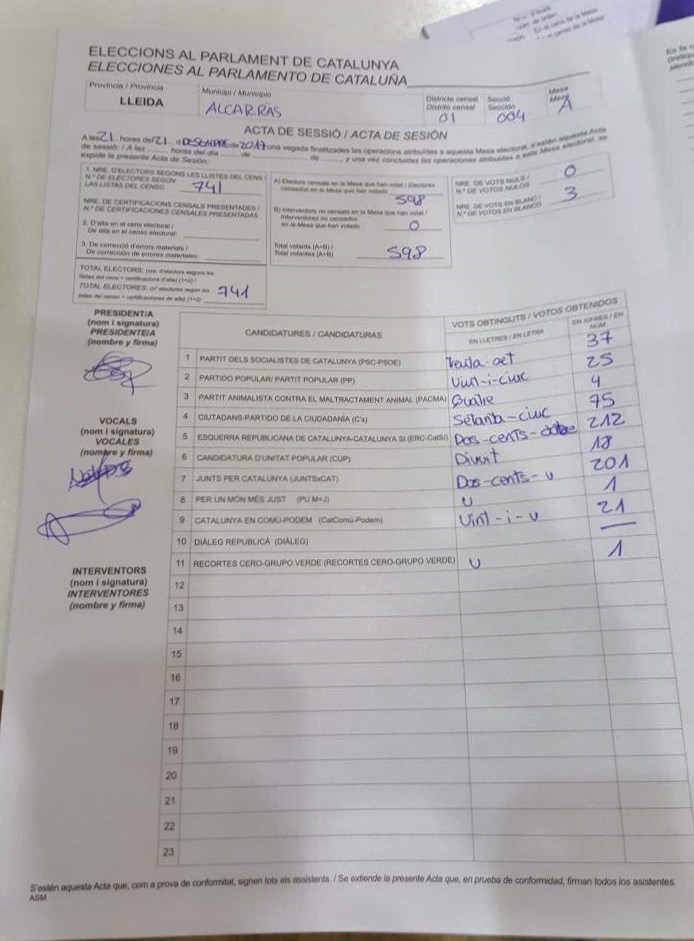 ELECCIONS AL PARLAMENT DE CATALUNYA
ELECCIONES AL PARLAMENTO DE CATALUÑA
Província / Provincia
LLEIDA
Municipi / Municipio
ALCARRÀS
Districte censal
Distrito censal
01
Secció
Sección
004
Mesa
Mesa
A
ACTA DE SESSIÓ / ACTA DE SESIÓN
A les 21 hores del 21 d DESEMBRE de 2017 una vegada finalitzades les operacions atribuïdes a aquesta Mesa electoral, s'estén aquesta Acta
de sessió: / A las ........ horas del día ........ de ........ de ........ y una vez concluidas las operaciones atribuidas a esta Mesa electoral, se
expide la presente Acta de Sesión:
1. NRE. D'ELECTORS SEGONS LES LLISTES DEL CENS /
N.º DE ELECTORES SEGÚN
LAS LISTAS DEL CENSO
741
NRE. DE CERTIFICACIONS CENSALS PRESENTADES /
N.º DE CERTIFICACIONES CENSALES PRESENTADAS
2. D'alta en el cens electoral /
De alta en el censo electoral:
3. De correcció d'errors materials /
De corrección de errores materiales:
TOTAL ELECTORS: (nre. d'electors segons les
llistes del cens + certificacions d'alta) (1+2) /
TOTAL ELECTORES: (nº electores según las
listas del censo + certificaciones de alta) (1+2)
741
A) Electors censats en la Mesa que han votat / Electores
censados en la Mesa que han votado
598
B) Interventors no censats en la Mesa que han votat /
Interventores no censados
en la Mesa que han votado
0
Total votants (A+B) /
Total votantes (A+B)
598
NRE. DE VOTS NULS /
N.º DE VOTOS NULOS
0
NRE. DE VOTS EN BLANC /
N.º DE VOTOS EN BLANCO
3
PRESIDENT/A
(nom i signatura)
PRESIDENTE/A
(nombre y firma)
VOCALS
(nom i signatura)
VOCALES
(nombre y firma)
INTERVENTORS
(nom i signatura)
INTERVENTORES
(nombre y firma)
CANDIDATURES / CANDIDATURAS
VOTS OBTINGUTS / VOTOS OBTENIDOS
EN LLETRES / EN LETRA
EN XIFRES / EN NÚM
1 PARTIT DELS SOCIALISTES DE CATALUNYA (PSC-PSOE) Trenta-set 37
2 PARTIDO POPULAR/ PARTIT POPULAR (PP) Vint-i-cinc 25
3 PARTIT ANIMALISTA CONTRA EL MALTRACTAMENT ANIMAL (PACMA) Quatre 4
4 CIUTADANS-PARTIDO DE LA CIUDADANÍA (C's) Setanta-cinc 75
5 ESQUERRA REPUBLICANA DE CATALUNYA-CATALUNYA SÍ (ERC-CatSí) Dos-cents-dotze 212
6 CANDIDATURA D'UNITAT POPULAR (CUP) Divuit 18
7 JUNTS PER CATALUNYA (JUNTSxCAT) Dos-cents-u 201
8 PER UN MÓN MÉS JUST (PU M+J) U 1
9 CATALUNYA EN COMÚ-PODEM (CatComú-Podem) Vint-i-u 21
10 DIÀLEG REPUBLICÀ (DIÀLEG) —
11 RECORTES CERO-GRUPO VERDE (RECORTES CERO-GRUPO VERDE) U 1
12
13
14
15
16
17
18
19
20
21
22
23
S'estén aquesta Acta que, com a prova de conformitat, signen tots els assistents. / Se extiende la presente Acta que, en prueba de conformidad, firman todos los asistentes.
ASM